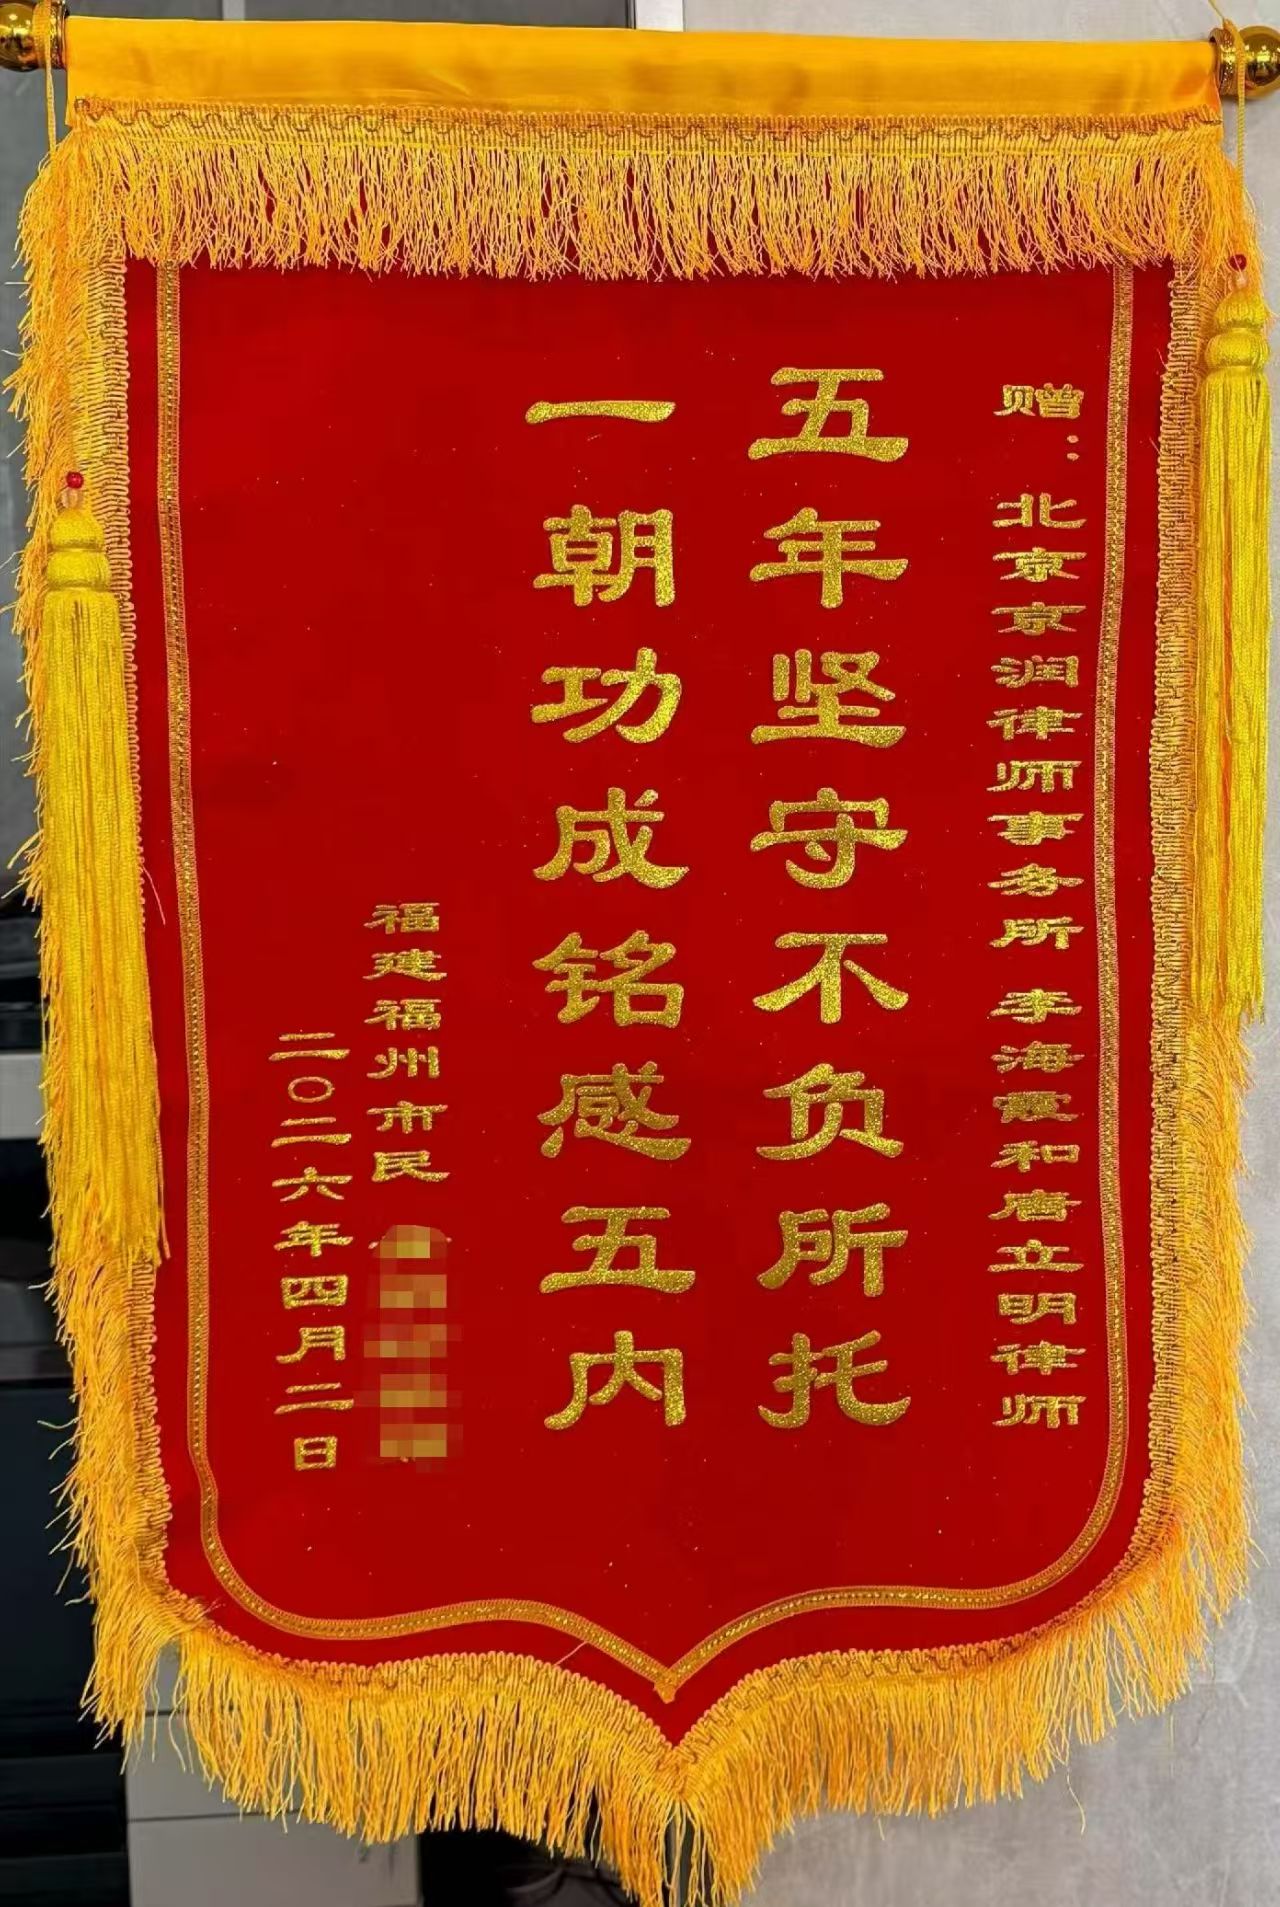 赠：北京京润律师事务所 李海霞和唐立明律师
五年坚守不负所托
一朝功成铭感五内
福建福州市民
二〇二六年四月二日